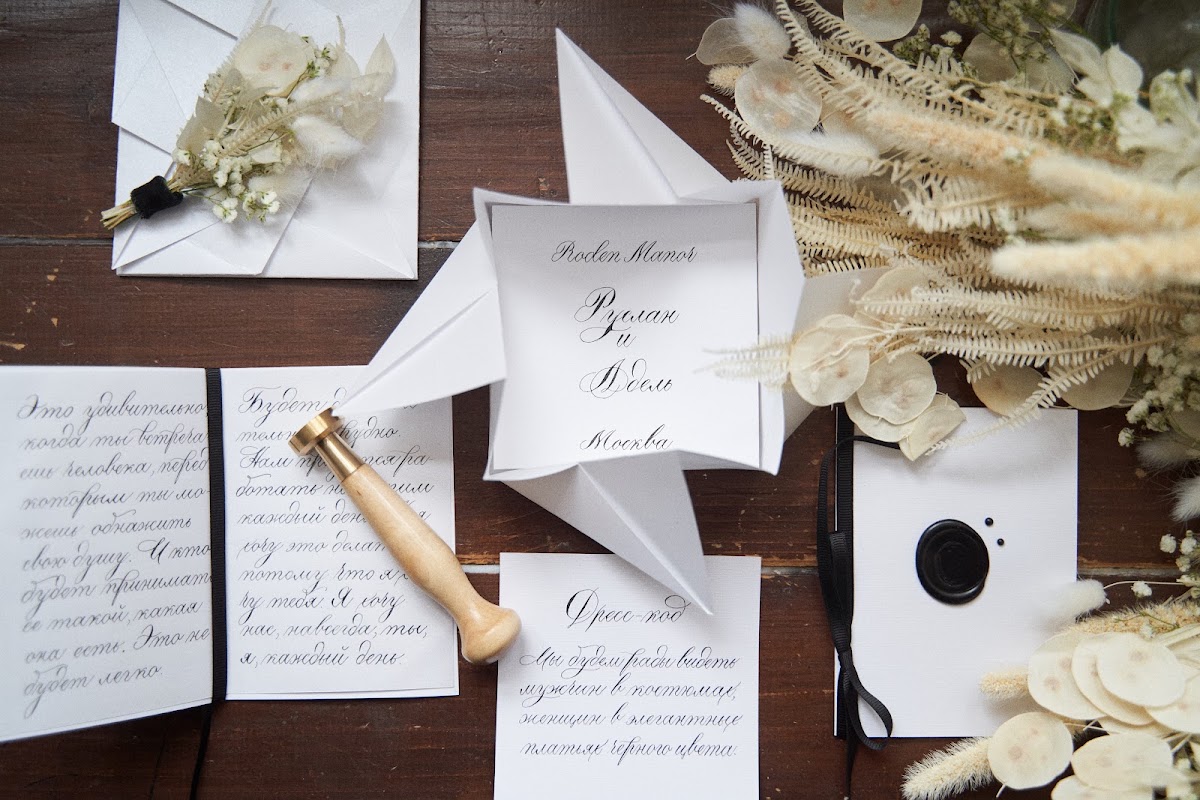 Roden Manor
Руслан
и
Адель
Москва
Это удивительно,
когда ты встреча
ешь человека, перед
которым ты мо-
жешь обнажить
свою душу. И кто
будет принимать
ее такой, какая
она есть. Это не
будет легко.
Будет
трудно.
Нам
ботать над этим
каждый день. Я
хочу это делать
потому что я хо-
чу тебя. Я хочу
нас, навсегда, ты,
я, каждый день.
Дресс-код
Мы будем рады видеть
мужчин в костюмах,
женщин в элегантных
платьях черного цвета.